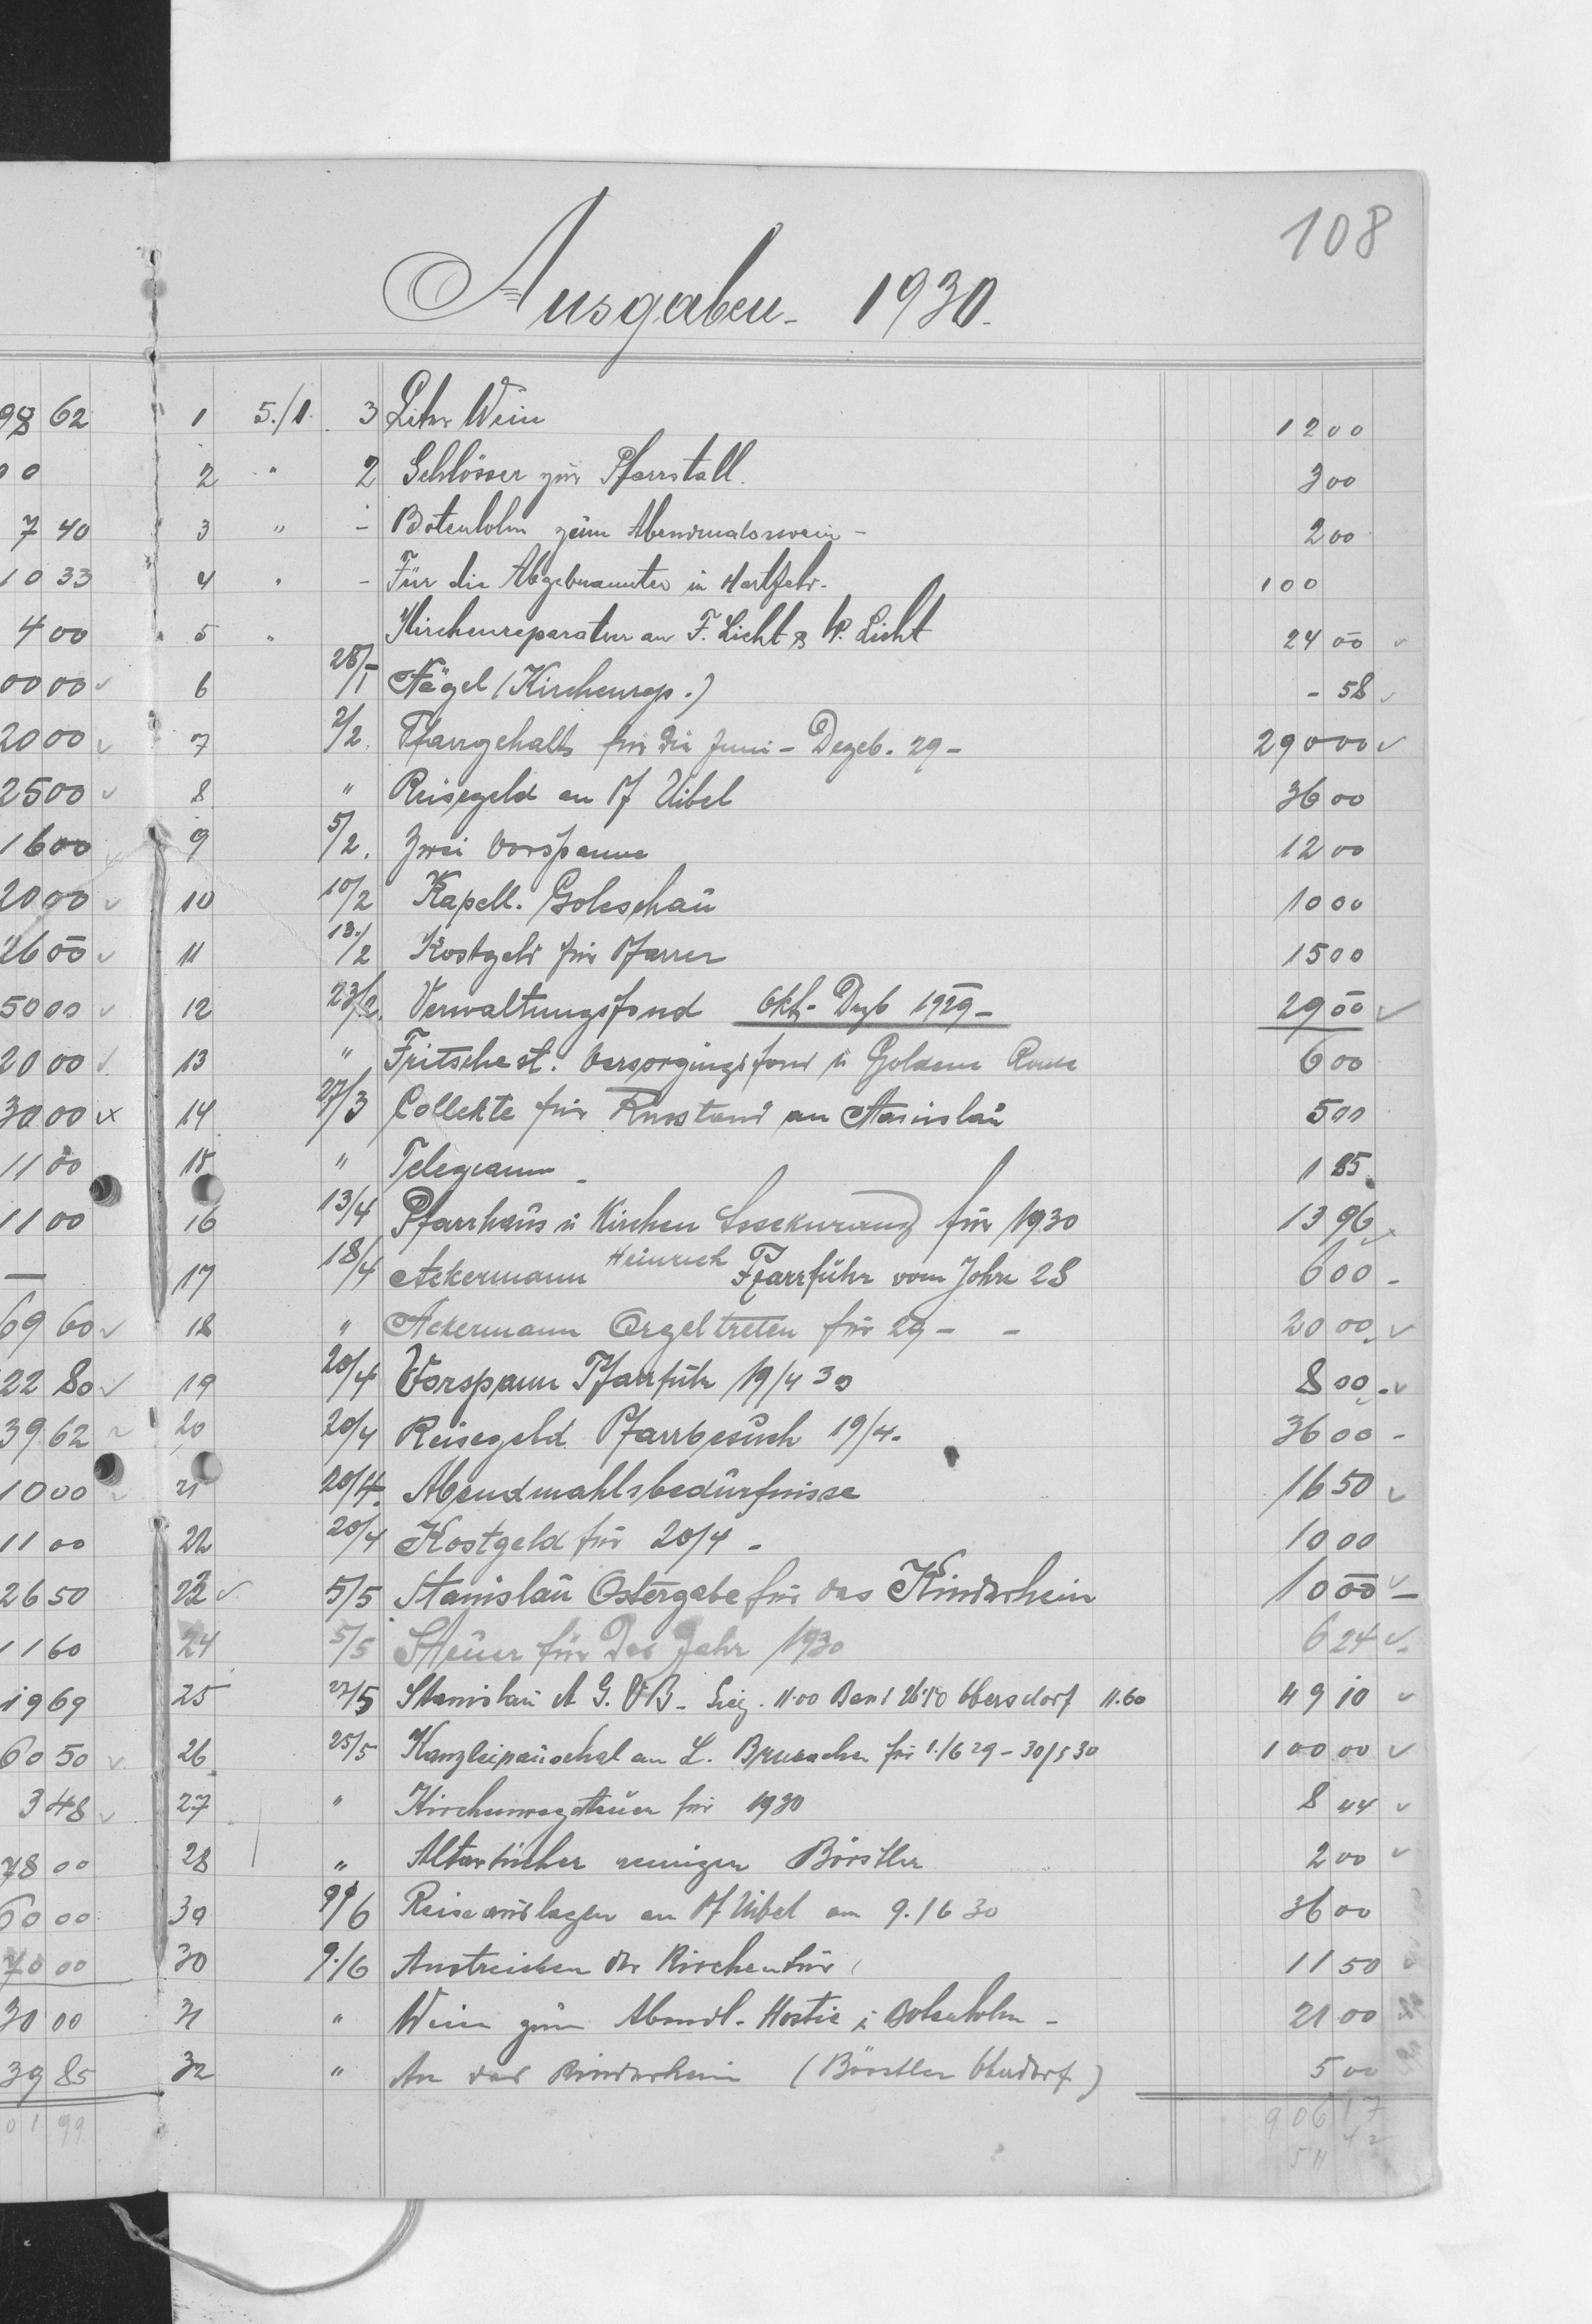 108
Ausgaben - 1930.
98 62 1 5./1. 3 Liter Wein 12 00
00 2 " 2 Schlösser zur Pfarrstall. 3 00
7 40 3 " - Botenlohn zum Abendmalswein - 2 00
10 33 4 " - Für die Abgebrannten in 1 00
4 00 5 " Kirchenreparatur an F. Licht & W. Licht 24 00 ✓
00 00 ✓ 6 28/1 Nägel (Kirchenrep.) - 58 ✓
20 00 ✓ 7 2/2. Pfarrgehalts für die Juni - Dezeb. 29 - 290 00 ✓
25 00 ✓ 8 " Reisegeld an Pf Uibel 36 00
16 00 9 5/2. Zwei Vorspanne 12 00
20 00 ✓ 10 10/2 Kapell. Goleschau 10 00
26 00 ✓ 11 13./2 Kostgeld für Pfarrer 15 00
50 00 ✓ 12 23/2. Verwaltungsfond Okt - Dezb 1929 - 29 00 ✓
20 00 ✓ 13 " Fritschest. Versorgungsfond u Goldene 6 00
30 00 14 27/3 Collekte für an Stanislau 5 00
11 00 15 " Telegramm - 1 85
11 00 16 13/4 Pfarrhaus u Kirchen Assekuranz für 1930 13 96
— 17 18/4 Ackermann Heinrich Pfarrführ vom Jahre 28 6 00 -
69 60 ✓ 18 " Ackermann Orgeltreten für 29 - - 20 00 ✓
22 80 ✓ 19 20/4 Vorspann Pfarrfuhr 19/4 30 8 00 - ✓
39 62 20 20/4 Reisegeld Pfarrbesuch 19/4. 36 00 -
10 00 21 20/4. Abendmahlsbedürfnisse 16 50 ✓
11 00 22 20/4 Kostgeld für 20/4 - 10 00
26 50 23 ✓ 5/5 Stanislau Ostergabe für das Kinderheim 10 00 ✓ -
11 60 24 5/5 Steuer für Das Jahr 1930 6 24 ✓
19 69 25 27/5 Stanislau A G. V B - 11.00 Band 26.50 Ebersdorf 11.60 49 10 ✓
60 50 ✓ 26 25/5 Kanzleipauschal an L. für 1./6 29 - 30/5 30 100 00 ✓
3 48 ✓ 27 " Kirchenwegsteuer für 1930 8 44 ✓
78 00 28 " Altartücher reinigen Börstler 2 00 ✓
60 00 39 9/6 Reiseauslagen an Pf Uibel am 9./6 30 36 00
70 00 30 9./6 Anstreichen der Kirchentür 11 50
30 00 31 " Wein zum Abendl. - Hostie u Botenlohn - 21 00
39 85 32 " An das Kinderheim (Börstler Oberdorf) 5 00
01 99 906 17